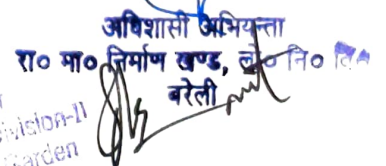 अधिशासी अभियन्ता
रा० मा० निर्माण खण्ड, लो० नि० वि०
बरेली
ivision-II
arden